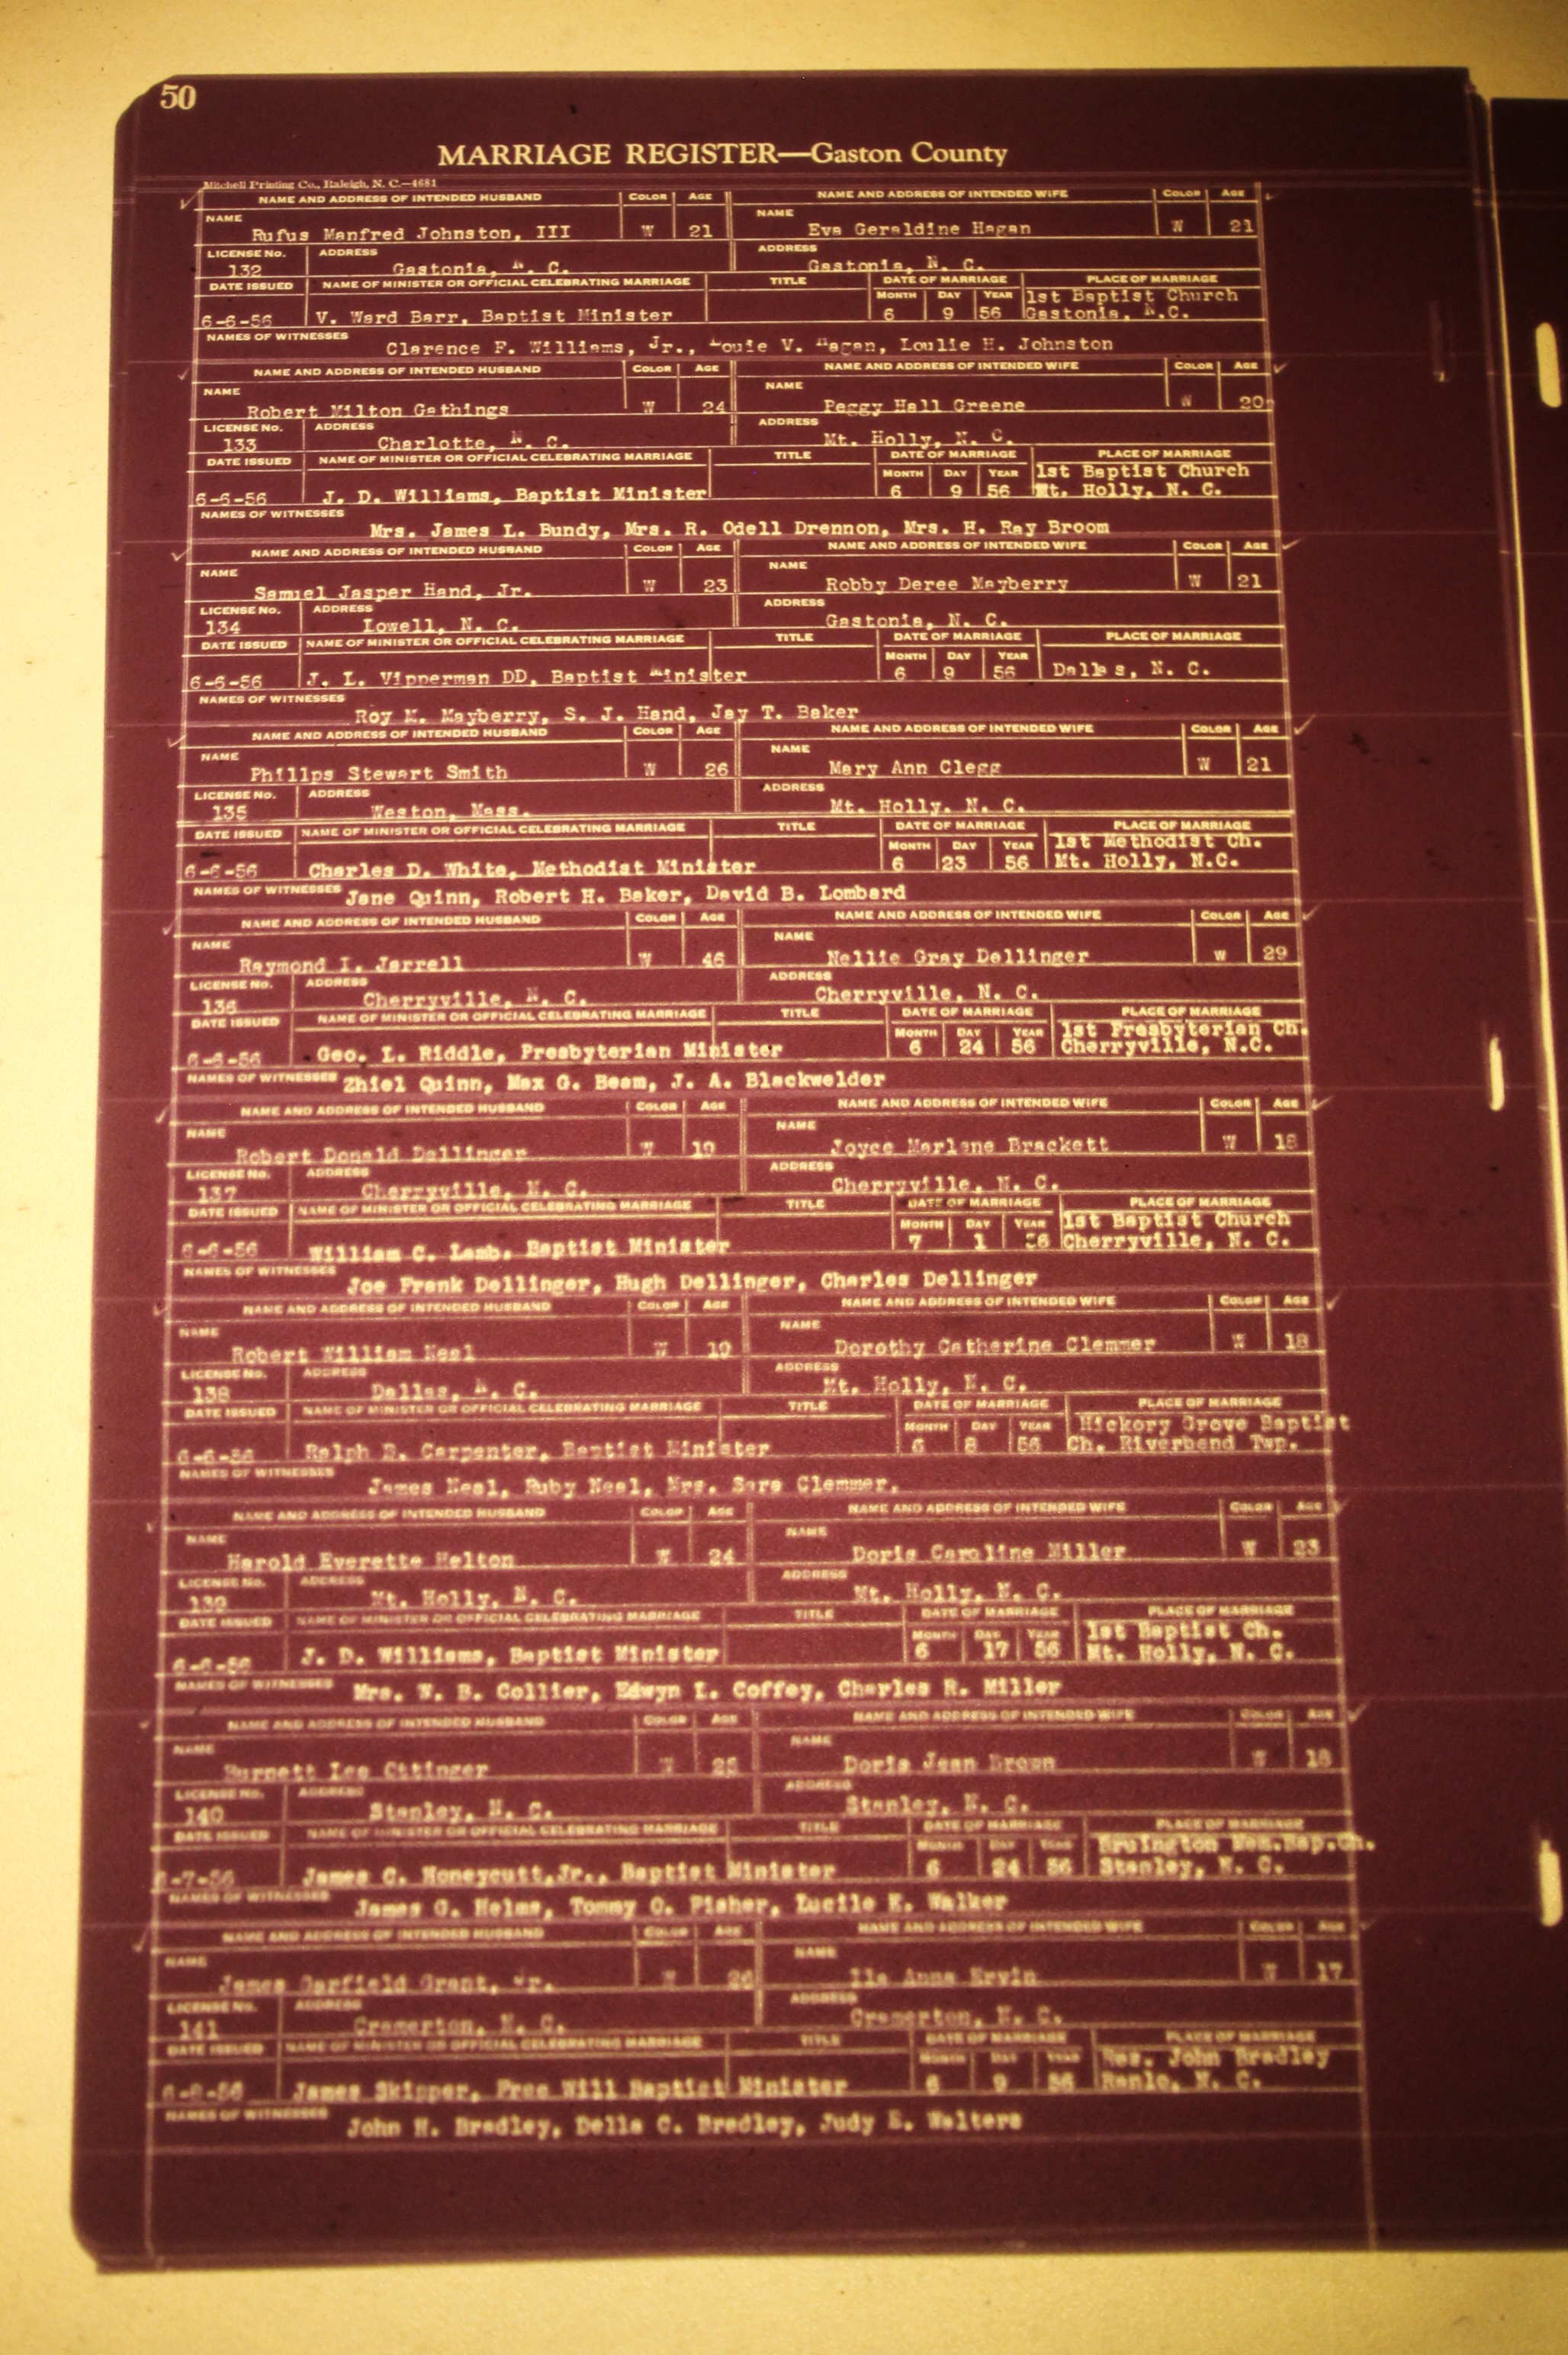 50
MARRIAGE REGISTER—Gaston County
Mitchell Printing Co., Raleigh, N. C.—4681
NAME AND ADDRESS OF INTENDED HUSBAND COLOR AGE NAME AND ADDRESS OF INTENDED WIFE COLOR AGE
NAME Rufus Manfred Johnston, III W 21 NAME Eva Geraldine Hagan W 21
LICENSE No. 132 ADDRESS Gastonia, N. C. ADDRESS Gastonia, N. C.
DATE ISSUED NAME OF MINISTER OR OFFICIAL CELEBRATING MARRIAGE TITLE DATE OF MARRIAGE PLACE OF MARRIAGE
MONTH DAY YEAR 1st Baptist Church
6-6-56 V. Ward Barr, Baptist Minister 6 9 56 Gastonia, N.C.
NAMES OF WITNESSES Clarence F. Williams, Jr., Louie V. Hagan, Loulie H. Johnston
NAME AND ADDRESS OF INTENDED HUSBAND COLOR AGE NAME AND ADDRESS OF INTENDED WIFE COLOR AGE
NAME Robert Milton Gathings W 24 NAME Peggy Hall Greene W 20
LICENSE No. 133 ADDRESS Charlotte, N. C. ADDRESS Mt. Holly, N. C.
DATE ISSUED NAME OF MINISTER OR OFFICIAL CELEBRATING MARRIAGE TITLE DATE OF MARRIAGE PLACE OF MARRIAGE
MONTH DAY YEAR 1st Baptist Church
6-6-56 J. D. Williams, Baptist Minister 6 9 56 Mt. Holly, N. C.
NAMES OF WITNESSES Mrs. James L. Bundy, Mrs. R. Odell Drennon, Mrs. H. Ray Broom
NAME AND ADDRESS OF INTENDED HUSBAND COLOR AGE NAME AND ADDRESS OF INTENDED WIFE COLOR AGE
NAME Samuel Jasper Hand, Jr. W 23 NAME Robby Deree Mayberry W 21
LICENSE No. 134 ADDRESS Lowell, N. C. ADDRESS Gastonia, N. C.
DATE ISSUED NAME OF MINISTER OR OFFICIAL CELEBRATING MARRIAGE TITLE DATE OF MARRIAGE PLACE OF MARRIAGE
MONTH DAY YEAR
6-6-56 J. L. Vipperman DD, Baptist Minister 6 9 56 Dallas, N. C.
NAMES OF WITNESSES Roy M. Mayberry, S. J. Hand, Jay T. Baker
NAME AND ADDRESS OF INTENDED HUSBAND COLOR AGE NAME AND ADDRESS OF INTENDED WIFE COLOR AGE
NAME Phillps Stewart Smith W 26 NAME Mary Ann Clegg W 21
LICENSE No. 135 ADDRESS Weston, Mass. ADDRESS Mt. Holly. N. C.
DATE ISSUED NAME OF MINISTER OR OFFICIAL CELEBRATING MARRIAGE TITLE DATE OF MARRIAGE PLACE OF MARRIAGE
MONTH DAY YEAR 1st Methodist Ch.
6-6-56 Charles D. White, Methodist Minister 6 23 56 Mt. Holly, N.C.
NAMES OF WITNESSES Jane Quinn, Robert H. Baker, David B. Lombard
NAME AND ADDRESS OF INTENDED HUSBAND COLOR AGE NAME AND ADDRESS OF INTENDED WIFE COLOR AGE
NAME Raymond I. Jarrell W 46 NAME Nellie Gray Dellinger W 29
LICENSE No. 136 ADDRESS Cherryville, N. C. ADDRESS Cherryville, N. C.
DATE ISSUED NAME OF MINISTER OR OFFICIAL CELEBRATING MARRIAGE TITLE DATE OF MARRIAGE PLACE OF MARRIAGE
MONTH DAY YEAR 1st Presbyterian Ch.
6-6-56 Geo. L. Riddle, Presbyterian Minister 6 24 56 Cherryville, N.C.
NAMES OF WITNESSES Zhiel Quinn, Max G. Beam, J. A. Blackwelder
NAME AND ADDRESS OF INTENDED HUSBAND COLOR AGE NAME AND ADDRESS OF INTENDED WIFE COLOR AGE
NAME Robert Donald Dellinger W 19 NAME Joyce Marlene Brackett W 18
LICENSE No. 137 ADDRESS Cherryville, N. C. ADDRESS Cherryville, N. C.
DATE ISSUED NAME OF MINISTER OR OFFICIAL CELEBRATING MARRIAGE TITLE DATE OF MARRIAGE PLACE OF MARRIAGE
MONTH DAY YEAR 1st Baptist Church
6-6-56 William C. Lamb, Baptist Minister 7 1 56 Cherryville, N. C.
NAMES OF WITNESSES Joe Frank Dellinger, Hugh Dellinger, Charles Dellinger
NAME AND ADDRESS OF INTENDED HUSBAND COLOR AGE NAME AND ADDRESS OF INTENDED WIFE COLOR AGE
NAME Robert William Neal W 19 NAME Dorothy Catherine Clemmer W 18
LICENSE No. 138 ADDRESS Dallas, N. C. ADDRESS Mt. Holly, N. C.
DATE ISSUED NAME OF MINISTER OR OFFICIAL CELEBRATING MARRIAGE TITLE DATE OF MARRIAGE PLACE OF MARRIAGE
MONTH DAY YEAR Hickory Grove Baptist
6-6-56 Ralph B. Carpenter, Baptist Minister 6 8 56 Ch. Riverbend Twp.
NAMES OF WITNESSES James Neal, Ruby Neal, Mrs. Sara Clemmer.
NAME AND ADDRESS OF INTENDED HUSBAND COLOR AGE NAME AND ADDRESS OF INTENDED WIFE COLOR AGE
NAME Harold Everette Helton W 24 NAME Doris Caroline Miller W 23
LICENSE No. 139 ADDRESS Mt. Holly, N. C. ADDRESS Mt. Holly, N. C.
DATE ISSUED NAME OF MINISTER OR OFFICIAL CELEBRATING MARRIAGE TITLE DATE OF MARRIAGE PLACE OF MARRIAGE
MONTH DAY YEAR 1st Baptist Ch.
6-6-56 J. D. Williams, Baptist Minister 6 17 56 Mt. Holly, N. C.
NAMES OF WITNESSES Mrs. W. B. Collier, Edwyn L. Coffey, Charles R. Miller
NAME AND ADDRESS OF INTENDED HUSBAND COLOR AGE NAME AND ADDRESS OF INTENDED WIFE COLOR AGE
NAME Burnett Lee Ottinger W NAME Doris Jean Brown W 18
LICENSE No. 140 ADDRESS Stanley, N. C. ADDRESS Stanley, N. C.
DATE ISSUED NAME OF MINISTER OR OFFICIAL CELEBRATING MARRIAGE TITLE DATE OF MARRIAGE PLACE OF MARRIAGE
MONTH DAY YEAR Mem.Bap.Ch.
6-7-56 James C. Honeycutt,Jr., Baptist Minister 6 24 56 Stanley, N. C.
NAMES OF WITNESSES James G. Helms, Tommy O. Fisher, Lucile K. Walker
NAME AND ADDRESS OF INTENDED HUSBAND COLOR AGE NAME AND ADDRESS OF INTENDED WIFE COLOR AGE
NAME James Garfield Grant, Jr. W NAME Ila Anna Ervin W 17
LICENSE No. 141 ADDRESS Cramerton, N. C. ADDRESS Cramerton, N. C.
DATE ISSUED NAME OF MINISTER OR OFFICIAL CELEBRATING MARRIAGE TITLE DATE OF MARRIAGE PLACE OF MARRIAGE
MONTH DAY YEAR Res. John Bradley
6-8-56 James Skipper, Free Will Baptist Minister 6 9 56 Ranlo, N. C.
NAMES OF WITNESSES John H. Bradley, Della C. Bradley, Judy E. Walters